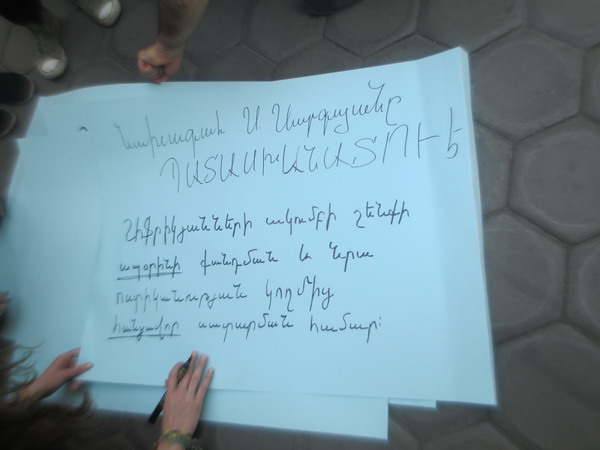 Նախագահ Ս. Սարգսյանը
ՊԱՏԱՍԽԱՆԱՏՈՒ է
Աֆրիկյանների ակումբի շենքի
ապօրինի քանդման և նրա
ոստիկանության կողմից
հանցավոր սատարման համար։